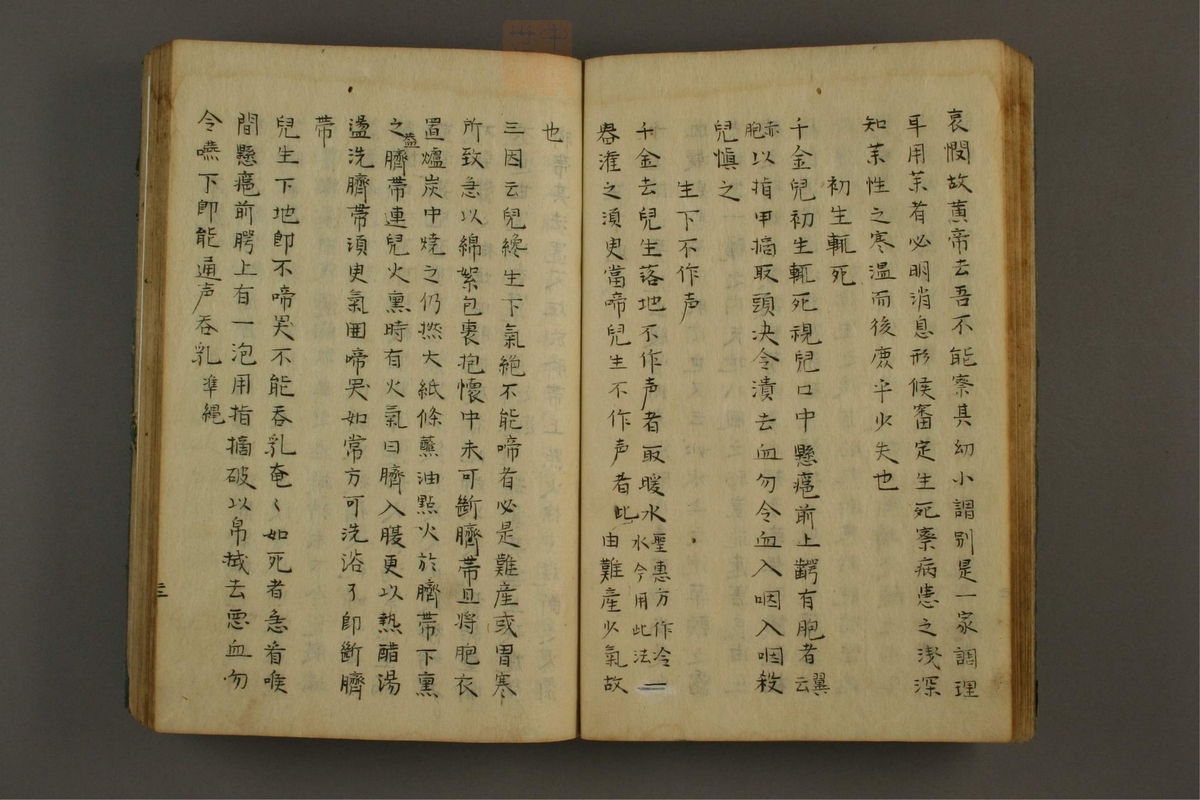 哀憫故黃帝云吾不能察其幼小謂別是一家調理
耳用薬者必明消息形候審定生死察病患之浅深
知薬性之寒温而後庶乎少失也
初生輒死
千金兒初生輒死視兒口中懸癰前上齶有胞者云翼
赤胞以指甲摘取頭決令潰去血勿令血入咽入咽殺
兒慎之
生下不作声
千金云兒生落地不作声者取暖水聖惠方作冷水今用此法一
器灌之須臾當啼兒生不作声者此由難産少氣故
也
三因云兒纔生下氣絶不能啼者必是難産或冒寒
所致急以綿絮包裹抱懷中未可断臍帯且將胞衣
置爐炭中焼之仍撚大紙條蘸油點火於臍帯下熏
之蓋臍帯連兒火熏時有火氣由臍入腹更以熱醋湯
盪洗臍帯須臾氣囬啼哭如常方可洗浴了即断臍
帯
兒生下地即不啼哭不能吞乳奄〻如死者急看喉
間懸癰前腭上有一泡用指摘破以帛拭去悪血勿
令嚥下即能通声吞乳 準縄
三